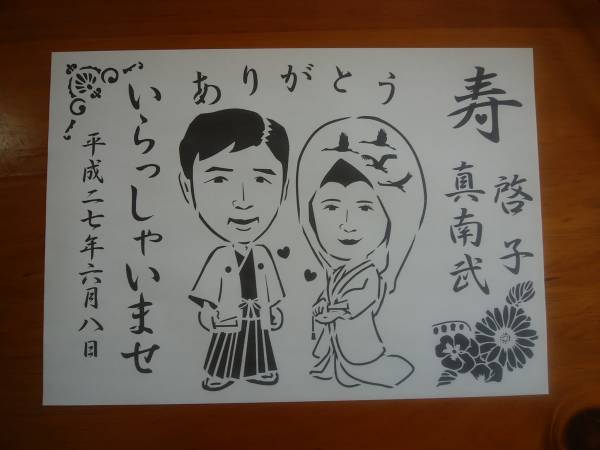 寿
啓子
真南武
ありがとう
いらっしゃいませ
平成二七年六月八日